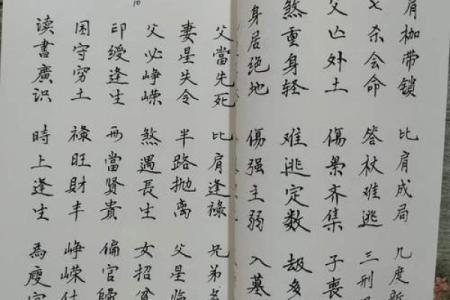 肩枷带锁 比肩成局 几度新
七杀会命 笞杖难逃 三刑
父亡外土 伤枭齐集 子丧
煞重身轻 难逃定数 劫多
身居绝地 伤强主弱 入墓
父當先死 比肩逢禄 兄弟
妻星失令 半路抛离 父星临
父必峥嵘 煞遇長生 女招
印綬逢生 當贤貴 偏官歸
困守穷土 禄旺財丰 峥嵘仕
读書廣识 時上逢生 為